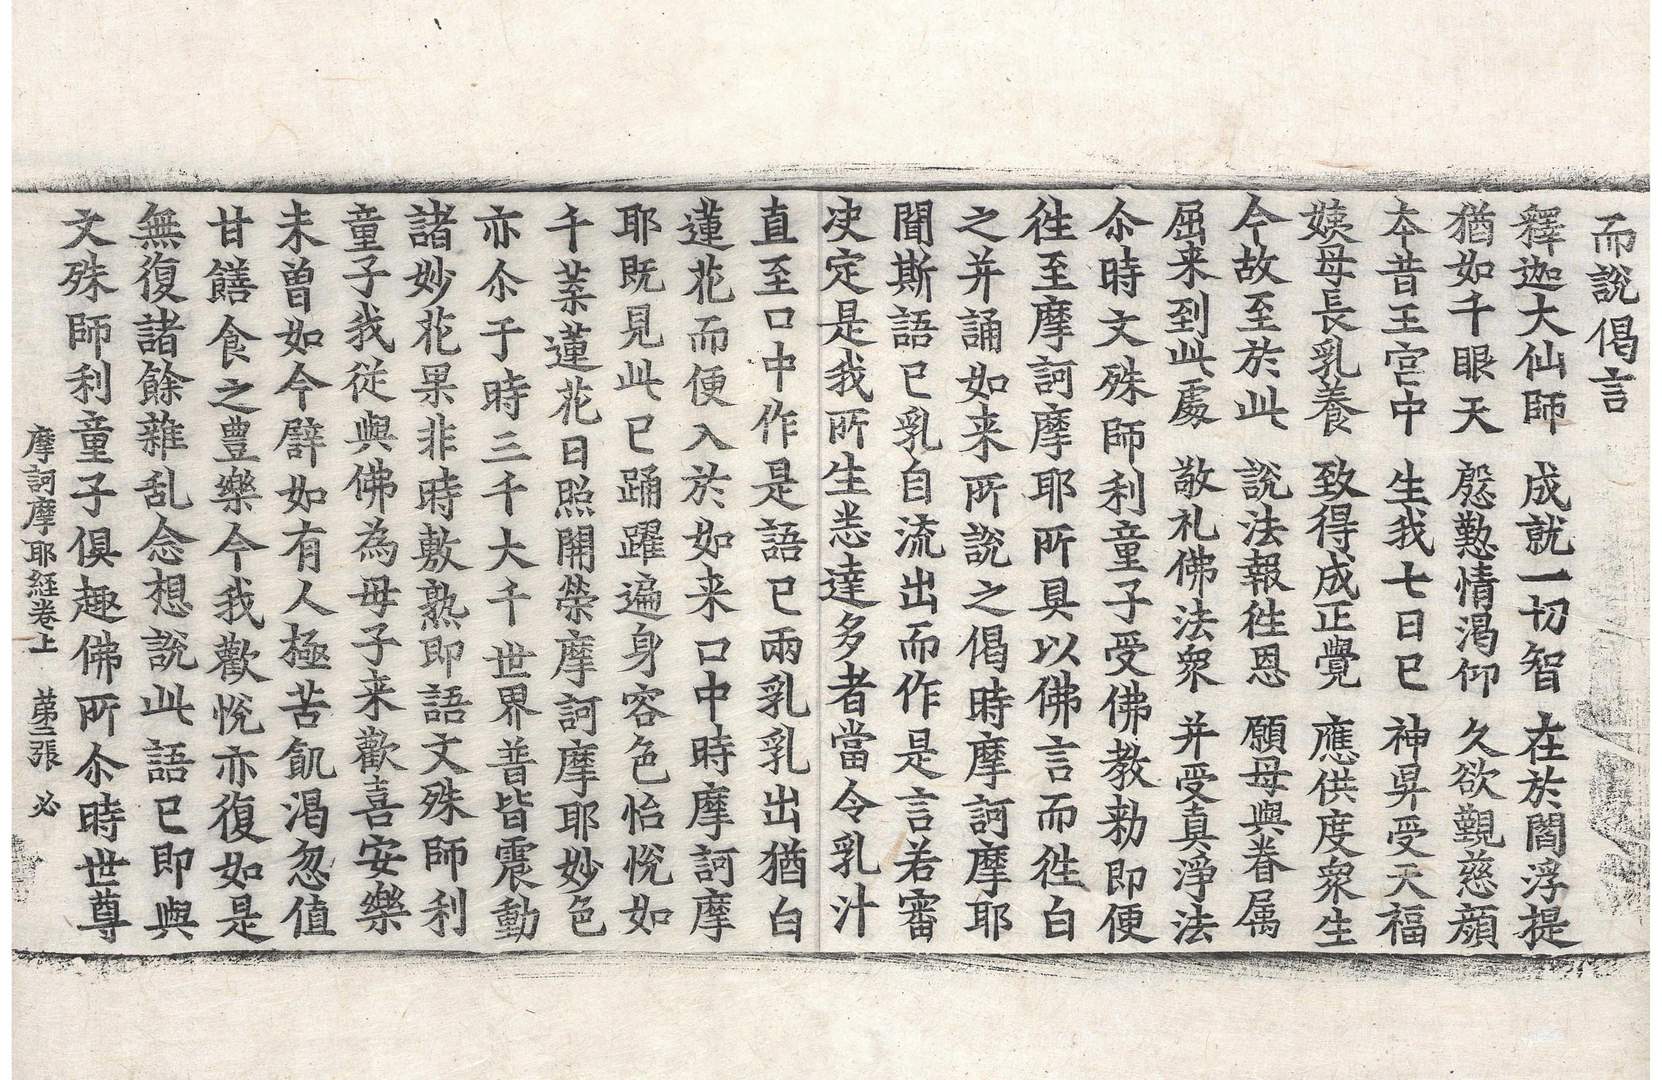 而說偈言
釋迦大仙師 成就一切智 在於閻浮提
猶如千眼天 慇懃情渴仰 久欲覲慈顔
夲昔王宮中 生我七日已 神昇受天福
姨母長乳養 致得成正覺 應供度衆生
今故至於此 說法報徃恩 願母與眷属
屈来到此處 敬礼佛法衆 并受真淨法
尒時文殊師利童子受佛教勑即便
徃至摩訶摩耶所具以佛言而徃白
之并誦如来所說之偈時摩訶摩耶
聞斯語已乳自流出而作是言若審
决定是我所生悉達多者當令乳汁
直至口中作是語已兩乳乳出猶白
蓮花而便入於如来口中時摩訶摩
耶既見此已踊躍遍身容色怡悅如
千葉蓮花日照開榮摩訶摩耶妙色
亦尒于時三千大千世界普皆震動
諸妙花果非時敷熟即語文殊師利
童子我從與佛為母子来歡喜安樂
未曽如今譬如有人極苦飢渴忽值
甘饍食之豊樂今我歡悅亦復如是
無復諸餘雜乱念想說此語已即與
文殊師利童子俱趣佛所尒時世尊
摩訶摩耶経卷上 苐三張 必